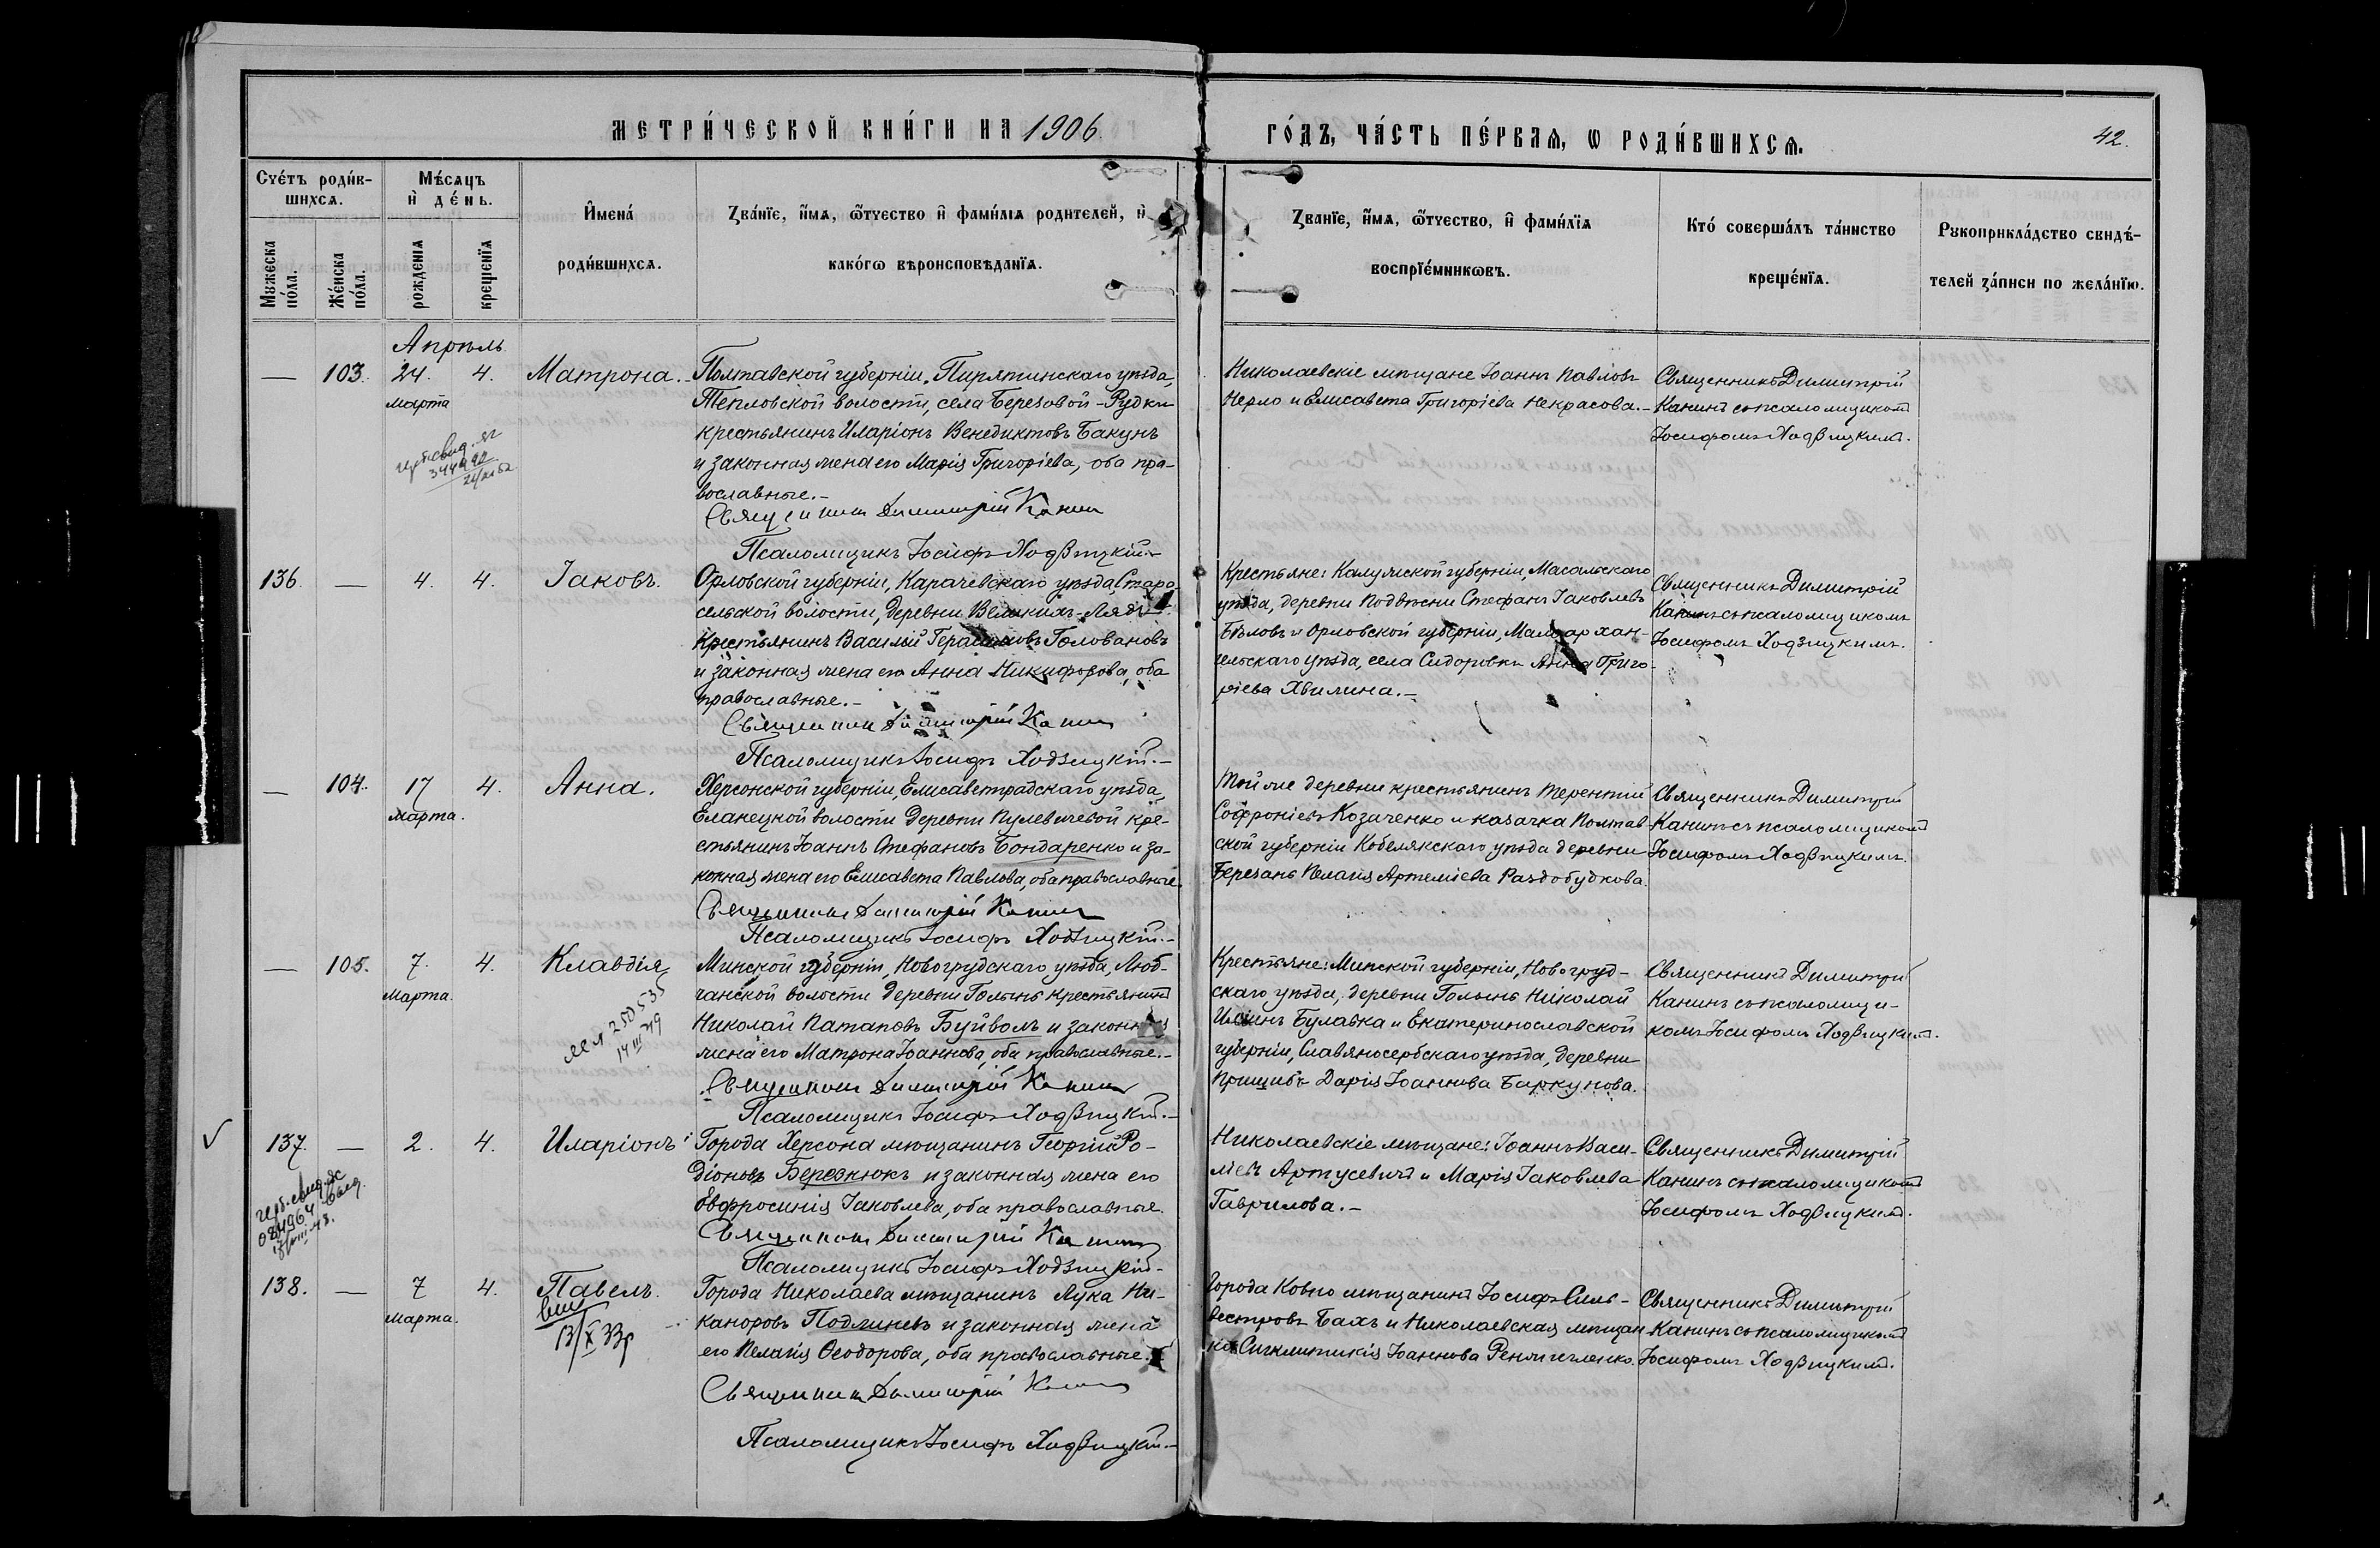 МЕТРИ́ЧЕСКОЙ КНИ́ГИ НА 1906
ГО́ДЪ, ЧА́СТЬ ПЕ́РВАѦ, Ѡ РОДИ́ВШИХСѦ.
42.
Сче́тъ роди́в-
шихсѧ.
Мѣ́сѧцъ
и҆ де́нь.
И҆мена́
роди́вшихсѧ.
Зва́нїе, и҆́мѧ, ѻ҆́тчество и҆ фами́лїѧ родителей, и҆
како́гѡ вѣроисповѣданїѧ.
Зва́нїе, и҆́мѧ, ѻ҆́тчество, и҆ фами́лїѧ
воспрїе́мниковъ.
Кто́ соверша́лъ та́инство
креще́нїѧ.
Рꙋкоприкла́дство свидѣ́-
телей за́писи по жела́нїю.
Мꙋжеска
по́ла.
Же́нска
по́ла.
рожденїѧ
крещенїѧ
Апрѣль
— 103. 24. 4. Матрона.
Марта
Полтавской губерніи, Пирятинскаго уѣзда,
Тепловской волости, села Березовой-Рудки
крестьянинъ Иларіонъ Венедиктовъ Бакунъ
и законная жена его Марія Григоріева, оба пра-
вославные.-
Священникъ Димитрій Канин
Псаломщикъ Іосифъ Ходзицкій.-
Николаевскіе мѣщане Іоаннъ Павловъ
Нерло и Елисавета Григоріева Некрасова.-
Священникъ Димитрій
Канинъ съ псаломщикомъ
Іосифомъ Ходзицкимъ.
136. — 4. 4. Іаковъ.
Орловской губерніи, Карачевскаго уѣзда, Старо-
сельской волости, деревни Великихъ-Лядъ
крестьянинъ Василій Герасимовъ Головановъ
и законная жена его Анна Никифорова, оба
православные.-
Священник Димитрій Канин
Псаломщикъ Іосифъ Ходзицкій.-
Крестьяне: Калужской губерніи, Масальскаго
уѣзда, деревни Подвѣсни Стефанъ Іаковлевъ
Бѣловъ и Орловской губерніи, Малоархан-
гельскаго уѣзда, села Сидоровки Анна Григо-
ріева Хвилина.-
Священникъ Димитрій
Канинъ съ псаломщикомъ
Іосифомъ Ходзицкимъ.
— 104. 17 4. Анна.
Марта.
Херсонской губерніи, Елисаветградскаго уѣзда,
Еланецкой волости деревни Пулевичевой кре-
стьянинъ Іоаннъ Стефановъ Бондаренко и за-
конная жена его Елисавета Павлова, оба православные.
Священникъ Димитрій Канин
Псаломщикъ Іосифъ Ходзицкій.-
Той же деревни крестьянинъ Терентій
Софроніевъ Козаченко и казачка Полтав-
ской губерніи Кобелякскаго уѣзда деревни
Березань Пелагія Артеміева Раздобудкова.
Священникъ Димитрій
Канинъ съ псаломщикомъ
Іосифомъ Ходзицкимъ.
— 105. 7. 4. Клавдія
Марта.
250535
14 III 49
Минской губерніи, Новогрудскаго уѣзда, Люб-
чанской волости деревни Голынь крестьянинъ
Николай Патаповъ Буйволъ и законная
жена его Матрона Іоаннова, оба православные.-
Священник Димитрій Канин
Псаломщикъ Іосифъ Ходзицкій.-
Крестьяне: Минской губерніи, Новогруд-
скаго уѣзда, деревни Голынь Николай
Ильинъ Булавка и Екатеринославской
губерніи, Славяносербскаго уѣзда, деревни
Пришивъ Дарія Іоаннова Баркунова.
Священникъ Димитрій
Канинъ съ псаломщи-
комъ Іосифомъ Ходзицкимъ.
137. — 2. 4. Иларіонъ
Города Херсона мѣщанинъ Георгій Ро-
діоновъ Березнюкъ и законная жена его
Евфросинія Іаковлева, оба православные.
Священник Димитрій Канин
Псаломщикъ Іосифъ Ходзицкій-
Николаевскіе мѣщане: Іоаннъ Васи-
ліевъ Артусевичъ и Марія Іаковлева
Гаврилова.-
Священникъ Димитрій
Канинъ съ псаломщикомъ
Іосифомъ Ходзицкимъ.
138. — 7 4. Павелъ.
Марта.
Города Николаева мѣщанинъ Лука Ни-
каноровъ Подлиневъ и законная жена
его Пелагія Ѳеодорова, оба православные.
Священник Димитрій Канин
Псаломщикъ Іосифъ Ходзицкій.-
Города Ковно мѣщанинъ Іосифъ Силь-
вестровъ Бахъ и Николаевская мѣщан
ка Сигклитикія Іоаннова
Священникъ Димитрій
Канинъ съ псаломщикомъ
Іосифомъ Ходзицкимъ.